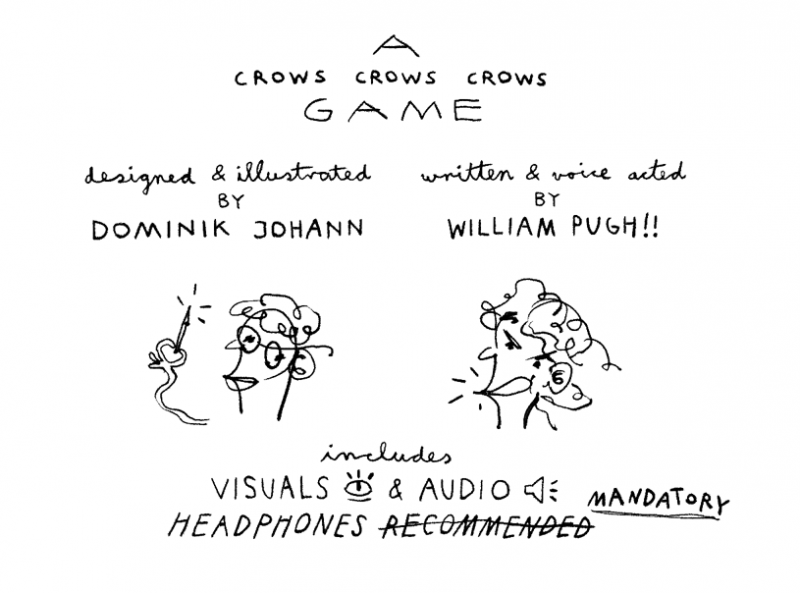 A
CROWS CROWS CROWS
GAME
designed & illustrated
BY
DOMINIK JOHANN
written & voice acted
BY
WILLIAM PUGH!!
includes
VISUALS & AUDIO
HEADPHONES RECOMMENDED MANDATORY